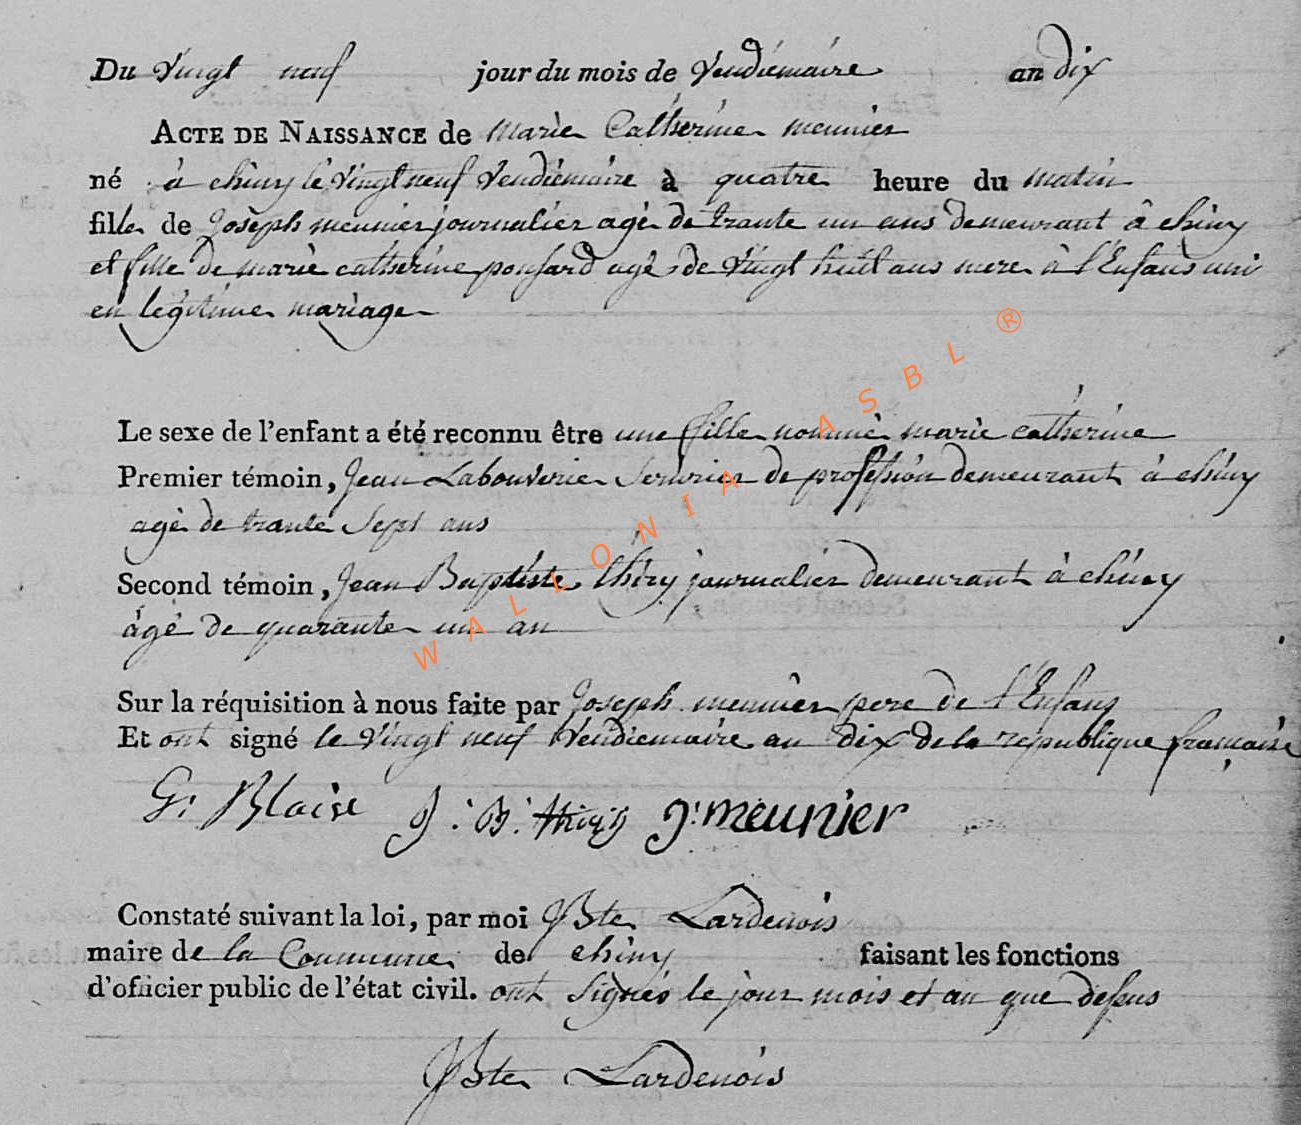 Du Vingt neuf jour du mois de Vendiémaire an dix
ACTE DE NAISSANCE de marie Catherine meunier
né à chiny le Vingt neuf Vendiémaire à quatre heure du matin
fille de Joseph meunier journalier agé de trante un ans demeurant à chiny
et fille de marie catherine ponsard agé de Vingt huit ans mere à l'Enfans uni
en légitime mariage
Le sexe de l'enfant a été reconnu être une fille nommé marie catherine
Premier témoin, Jean Labouverie de profession demeurant à chiny
agé de trante Sept ans
Second témoin, Jean Baptiste thiry journalier demeurant à chiny
âgé de quarante un an
Sur la réquisition à nous faite par Joseph meunier pere de l'Enfans
Et ont signé le Vingt neuf Vendiemaire an dix de la republique francaise
G: Blaise J: B: thiry J: meunier
Constaté suivant la loi, par moi JBte Lardenois
maire de la Commune de chiny faisant les fonctions
d'officier public de l'état civil. ont Signés le jour mois et an que dessus
JBte Lardenois
WALLONIA ASBL ®